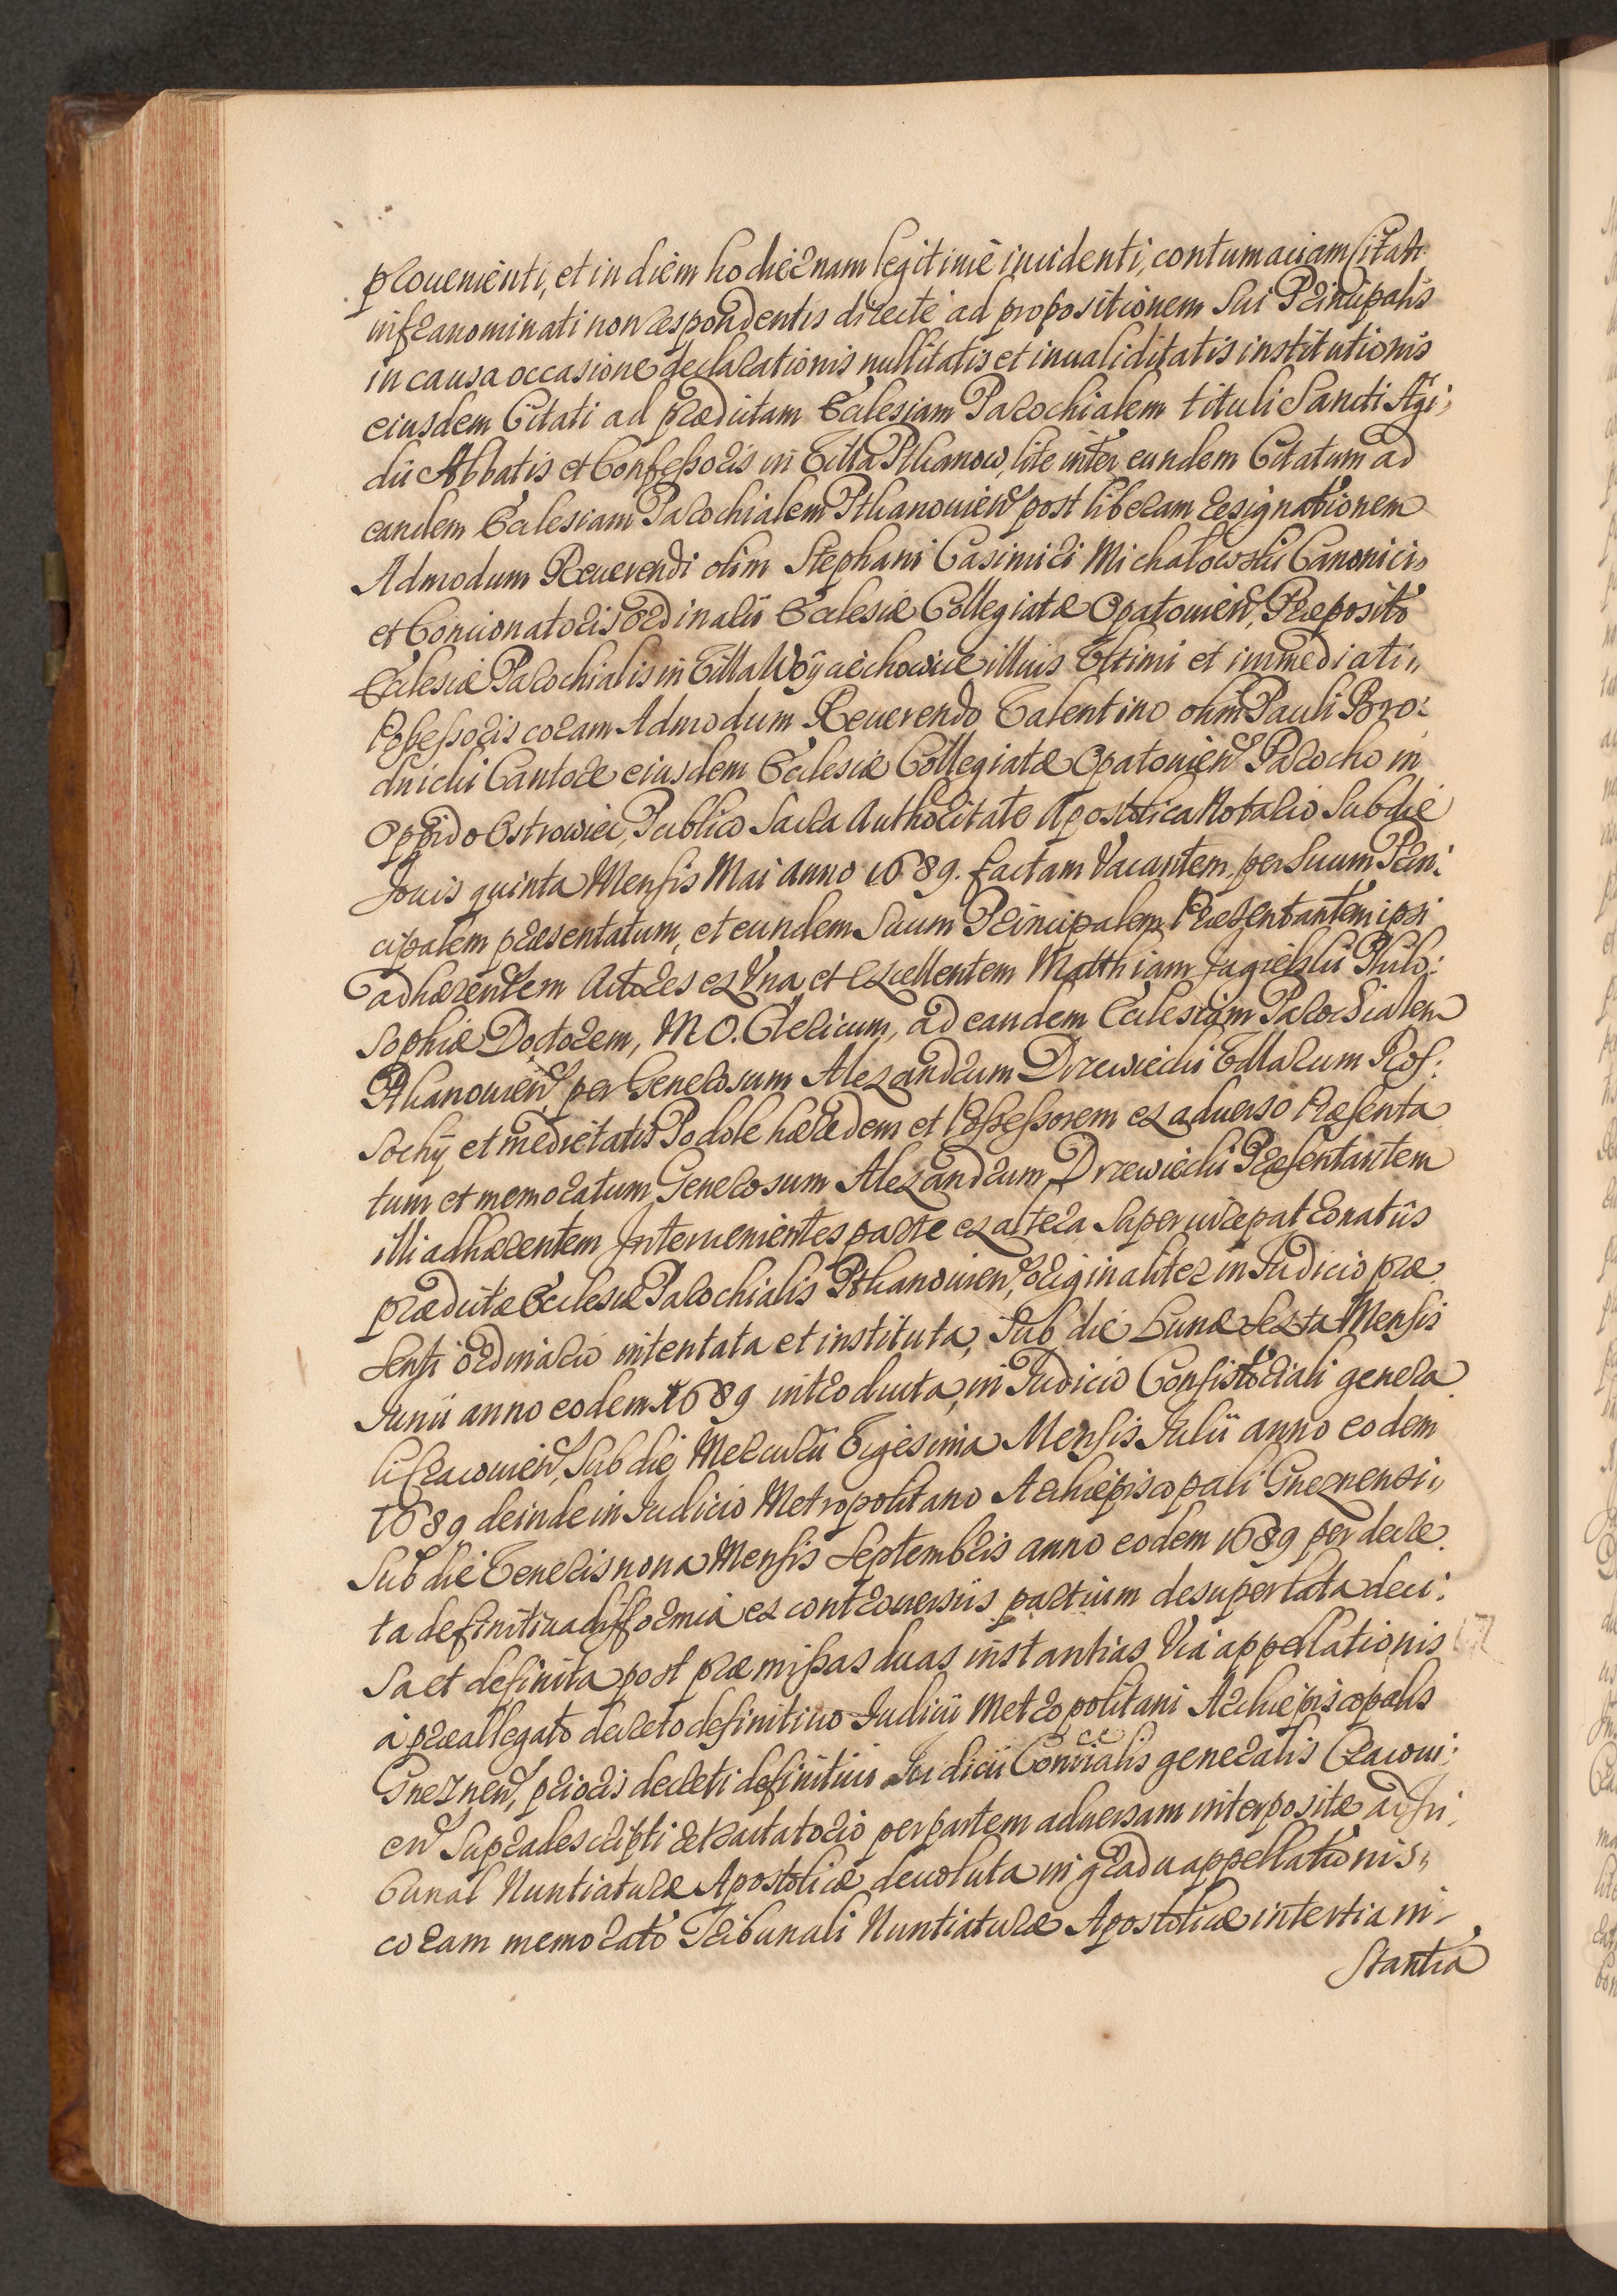 prouenienti, et in diem hodiernam legitimè incidenti, contumaciam Citati
infranominati non respondentis directè ad propositionem sui Principalis
in causa occasione declarationis nullitatis et inualiditatis institutionis
eiusdem Citati ad prædictam Ecclesiam Parochialem tituli Sancti Ægi:
dii Abbatis et Confessoris in Villa Ptkanow, lite inter eundem Citatum ad
eandem Ecclesiam Parochialem Ptkanouien post liberam resignationem
Admodum Reuerendi olim Stephani Casimiri Michałowski Canonici
et Concionatoris ordinarii Ecclesiæ Collegiatæ Opatouien, Præposito
Ecclesiæ Parochialis in Villa Woyciechowice illius Vltimi et immediati
Possessoris coram Admodum Reuerendo Valentino olim Pauli Bro:
dnicki Cantore eiusdem Ecclesiæ Collegiatæ Opatouien Parocho in
Oppido Ostrowiec, Publico Sacra Authoritate Apostolica Notario Sub die
Jouis quinta Mensis Mai anno 1689. factam Vacantem, per Suum Prin:
cipalem præsentatum, et eundem Suum Principalem Præsentantem ipsi
adhærentem Actores ex Vna, et Excellentem Matthiam Jagielski Philo:
sophiæ Doctorem, M O. Clericum, ad eandem Ecclesiam Parochialem
Ptkanouien per Generosum Alexandrum Drzewiecki Villarum Ros:
sochy et medietatis Podole hæredem et Possessorem ex aduerso Præsenta
tum et memoratum Generosum Alexandrum Drzewiecki Præsentantem
illi adhærentem Interuenientes parte ex altera Super iure patronatus
prædictæ Ecclesiæ Parochialis Ptkanouien, originaliter in Iudicio præ
senti ordinario intentata et instituta, Sub die Lunæ Sexta Mensis
Iunii anno eodem 1689 introducta, in Iudicio Consistoriali genera
li Cracouien, Sub die Mercurii Vigesima Mensis Iulii anno eodem
1689 deinde in Iudicio Metropolitano Archiepiscopali Gneznensi
Sub die Veneris nona Mensis Septembris anno eodem 1689 per decre
ta definitiua difformia ex controuersiis partium desuper lata deci:
sa et definita post præmissas duas instantias Via appellationis
à præallegato decreto definitiuo Iudicii Metropolitani Archiepiscopalis
Gneznen, prioris decreti definitiui Iudicii Conrialis generalis Cracoui:
en Supradescripti retractatorio per partem aduersam interpositæ ad Tri:
bunal Nuntiaturæ Apostolicæ deuoluta in gradu appellationis
coram memorato Tribunali Nuntiaturæ Apostolicæ in tertia in
stantia